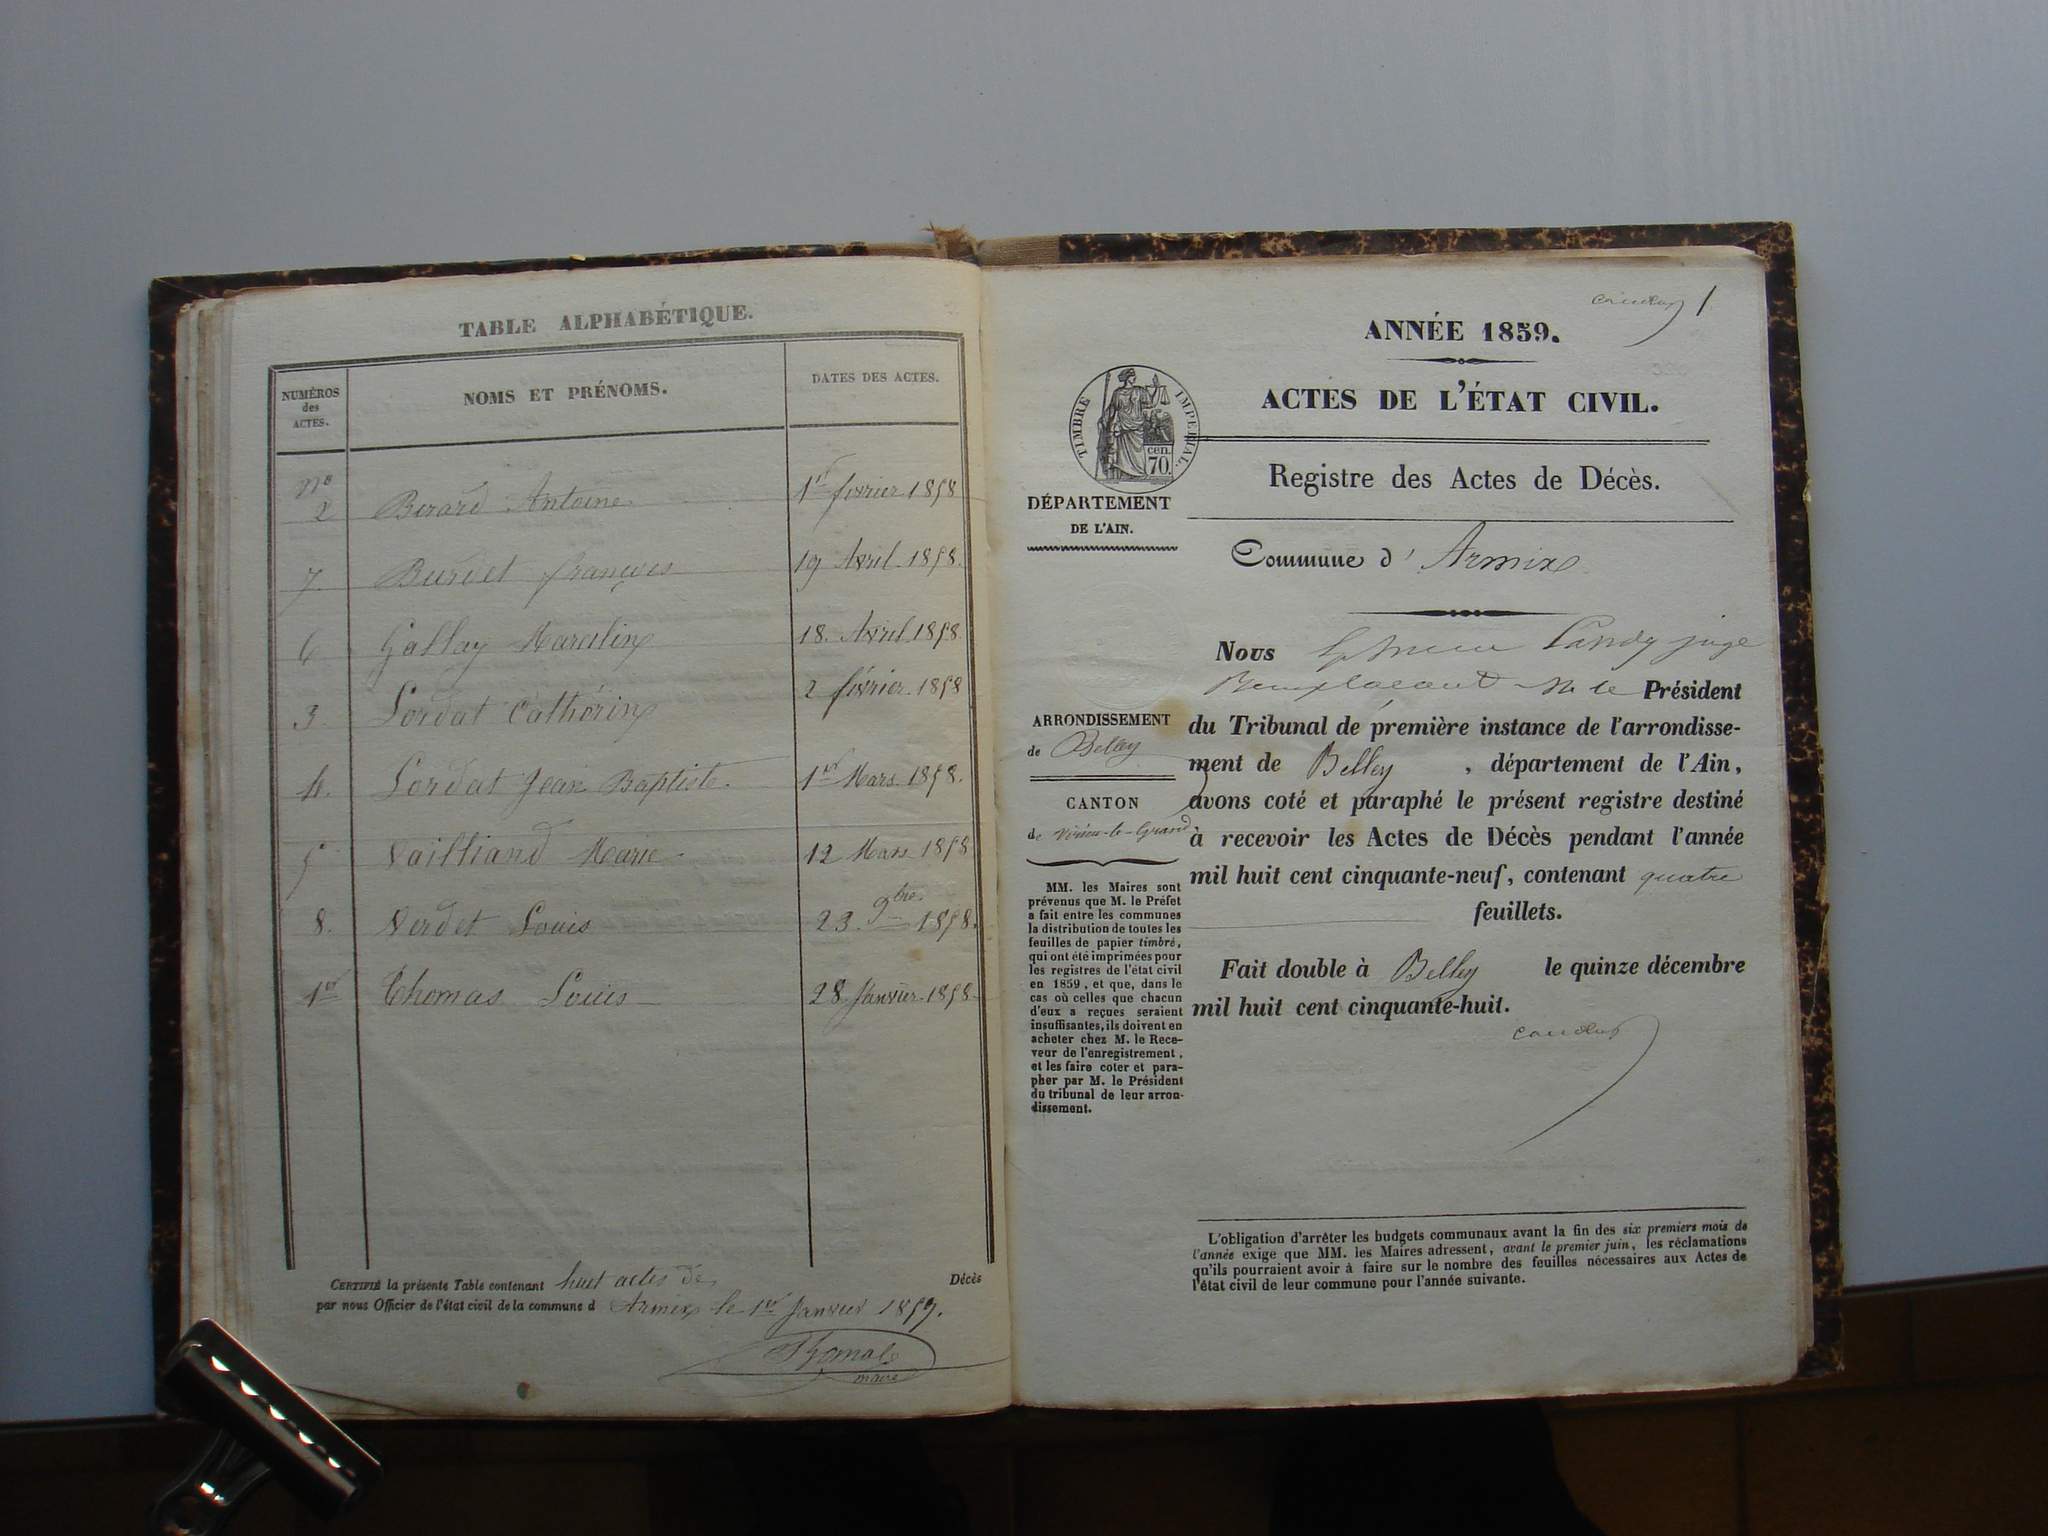 TABLE ALPHABÉTIQUE.
NUMÉROS des ACTES.
NOMS ET PRÉNOMS.
DATES DES ACTES.
No 2 Berard Antoine 1er fevrier 1858
7. Burdet françois 19 Avril 1858.
6 Gallay Marcelin 18. Avril 1858
3 Lordat Cathérine 2 février 1858
4. Lordat Jean Baptiste. 1er Mars 1858.
5 Vailliand Marie 12 Mars 1858
8. Verdet Louis 23. 9bre 1858.
1er Thomas Louis 28 Janvier 1858
CERTIFIÉ la présente Table contenant huit actes de Décès
par nous Officier de l'état civil de la commune d Armix le 1er Janvier 1859.
Thomas
maire
1
ANNÉE 1859.
ACTES DE L'ÉTAT CIVIL.
TIMBRE IMPERIAL.
cen.
70.
Registre des Actes de Décès.
DÉPARTEMENT
DE L'AIN.
Commune d' Armix
Nous juge
Remplacant Mr le Président
du Tribunal de première instance de l'arrondisse-
ment de Belley , département de l'Ain,
avons coté et paraphé le présent registre destiné
à recevoir les Actes de Décès pendant l'année
mil huit cent cinquante-neuf, contenant quatre
feuillets.
Fait double à Belley le quinze décembre
mil huit cent cinquante-huit.
ARRONDISSEMENT
de Belley
CANTON
de Virieu-le-Grand
MM. les Maires sont
prévenus que M. le Préfet
a fait entre les communes
la distribution de toutes les
feuilles de papier timbré,
qui ont été imprimées pour
les registres de l'état civil
en 1859, et que, dans le
cas où celles que chacun
d'eux a reçues seraient
insuffisantes, ils doivent en
acheter chez M. le Rece-
veur de l'enregistrement,
et les faire coter et para-
pher par M. le Président
du tribunal de leur arron-
dissement.
L'obligation d'arrêter les budgets communaux avant la fin des six premiers mois de
l'année exige que MM. les Maires adressent, avant le premier juin, les réclamations
qu'ils pourraient avoir à faire sur le nombre des feuilles nécessaires aux Actes de
l'état civil de leur commune pour l'année suivante.